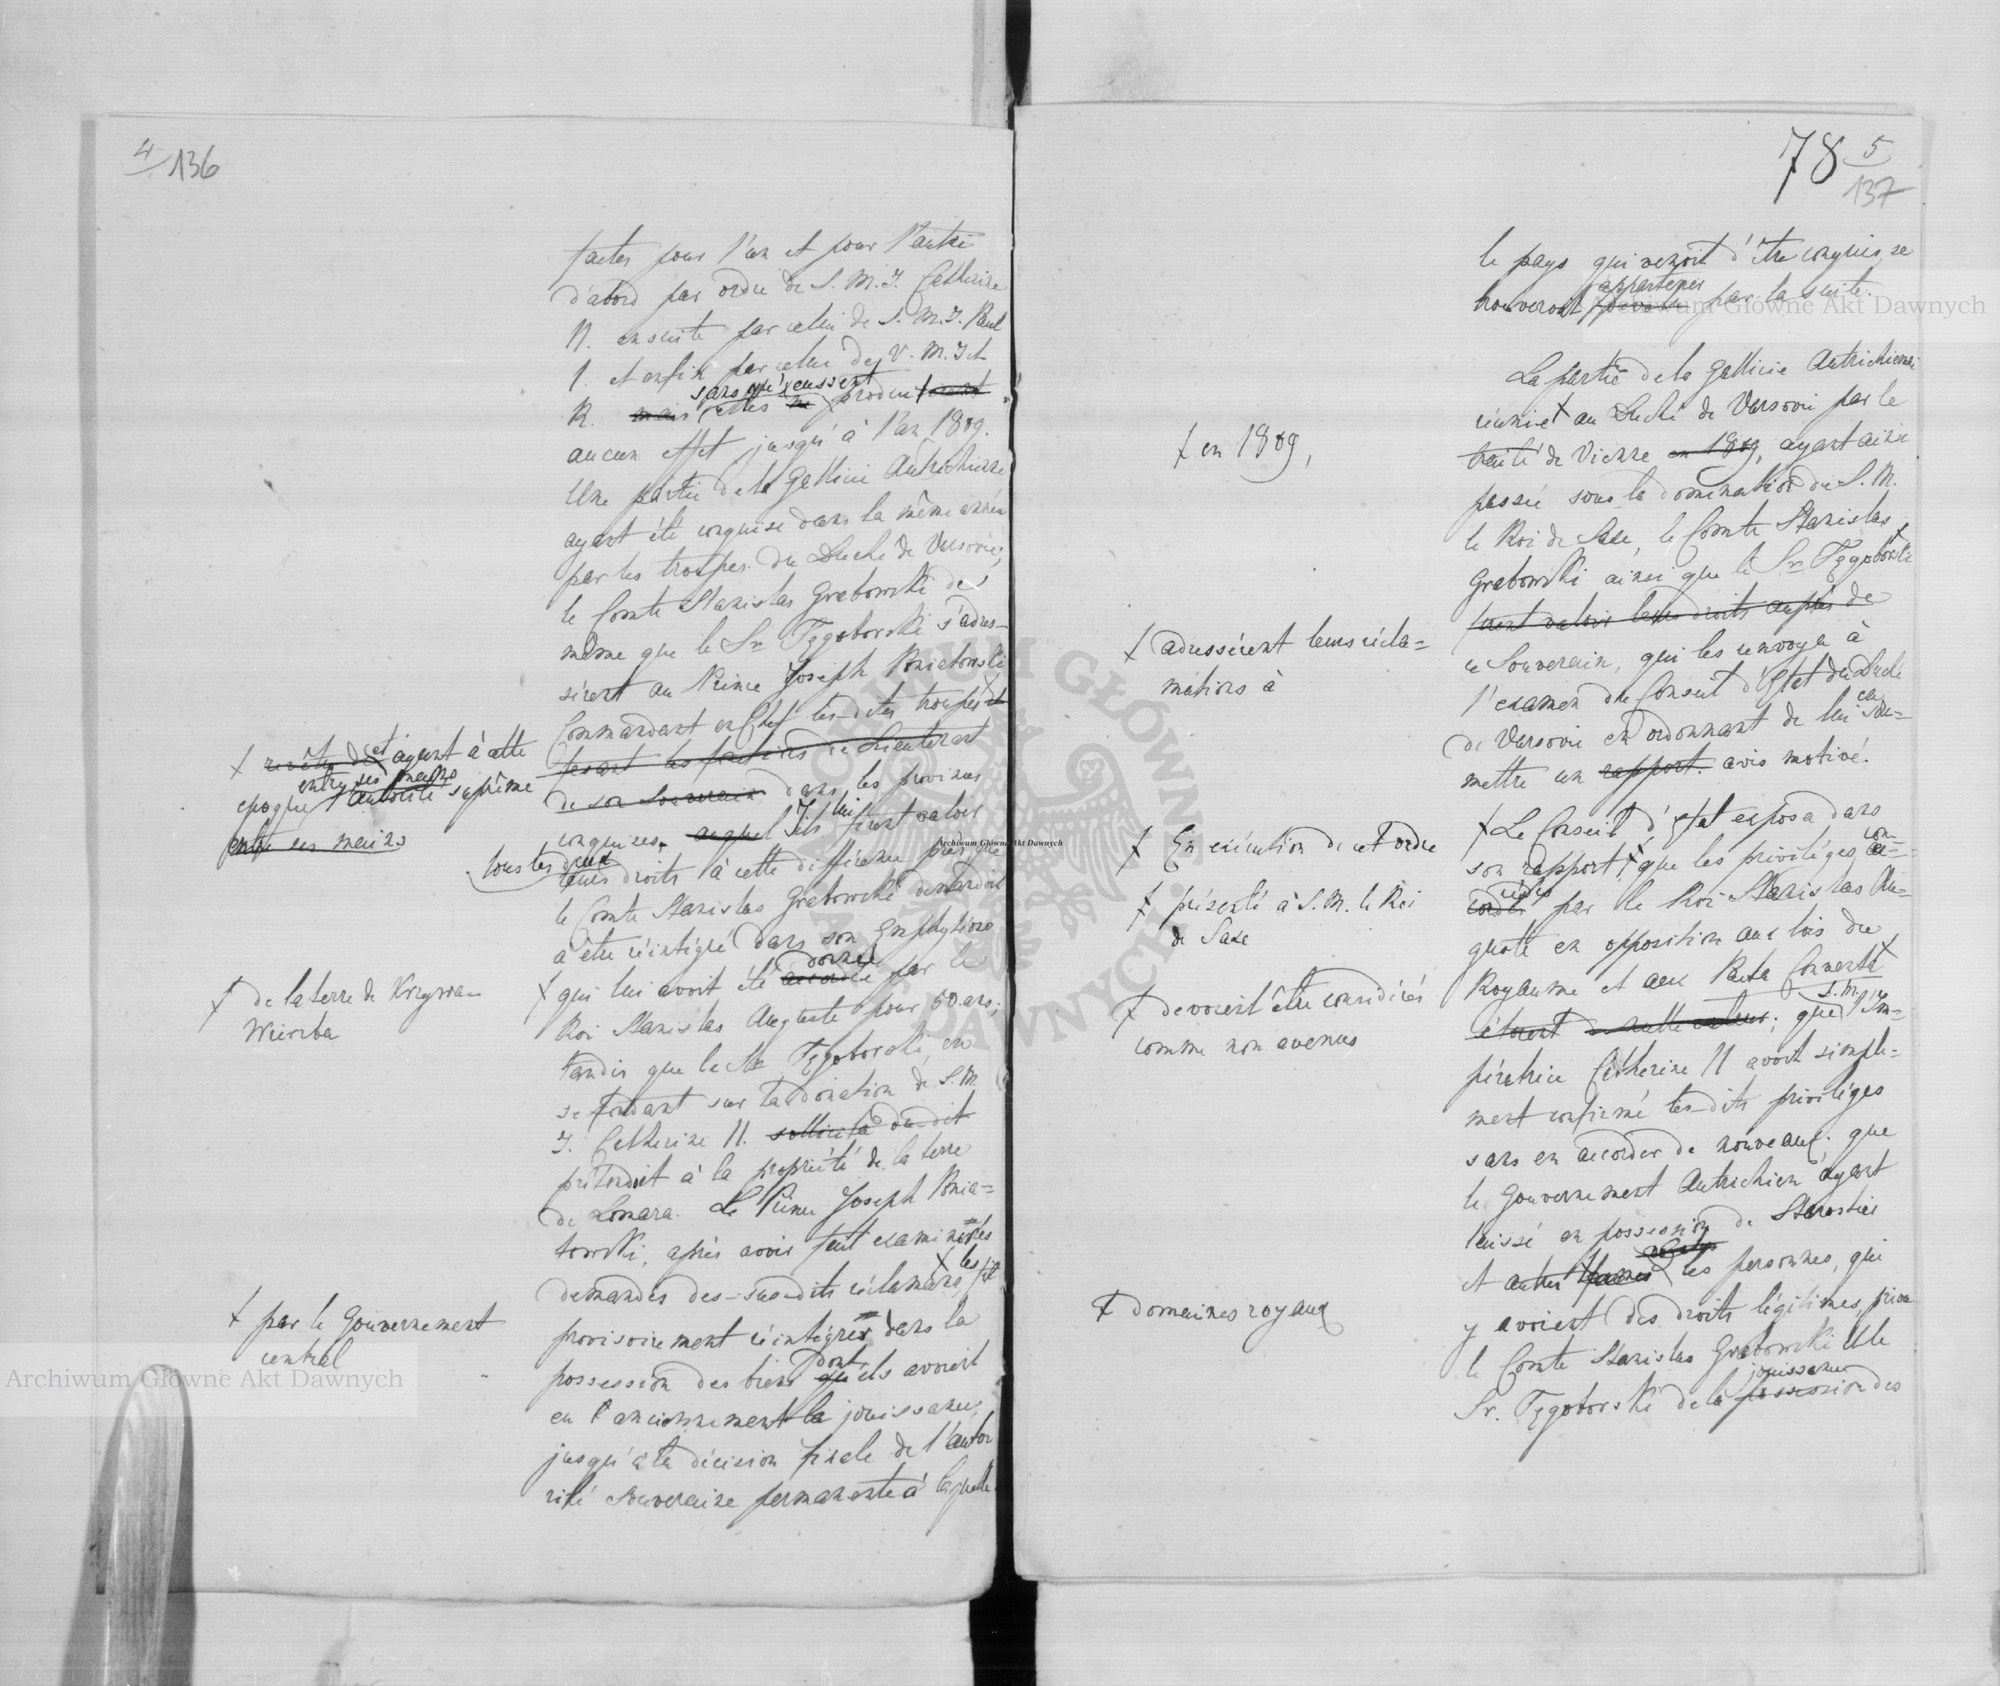 4/136
faites pour l'un et pour l'autre
d'abord par ordre de S. M. I. Catherine
II. ensuite par celui de S. M. I. Paul
I. et enfin par celui de V. M. I. et
sans qu'eussent
R. mais elles ne produit
aucun effet jusqu'à l'an 1809.
Une partie de la Gallicie Autrichienne
ayant été conquise dans la même année
par les troupes du Duché de Varsovie,
le Comte Stanislas Grabowski de
même que le Sr. Tęgoborski s'adres-
sèrent au Prince Joseph Poniatowski
Commandant en Chef les-dites troupes et
+ revêtu de et ayant à cette
faisant les fonctions de Lieutenant
entre ses mains
epoque l'autorité suprême
de son Souverain dans les provinces
entre ses mains
conquises. auquel Ils lui firent valoir
tous les deux
leurs droits à cette différence près que
le Comte Stanislas Grabowski demandoit
a être réintégré dans son Emphytéose
donnée
+ de la terre de Krzywa-
Wierzba
+ qui lui avoit été accordée par le
Roi Stanislas Auguste pour 50 ans;
tandis que le Sr. Tęgoborski, en
se fondant sur la donation de S. M.
I. Catherine II. sollicita du dit
prétendoit à la propriété de la terre
de Lomara. Le Prince Joseph Ponia=
towski, après avoir fait examiner les
demandes des-susdits réclamans + les fit
+ par le Gouvernement
central
provisoirement réintégrer dans la
dont
possession des biens qu'ils avoient
eu l'anciennement la jouissance,
jusqu'à la décision finale de l'auto
rité souveraine permanente à laquelle
78 5/137
le pays qui venoit d'être conquis, se
appartenir
trouveront par la suite.
La partie de la Gallicie Autrichienne
réunie + au Duché de Varsovie par le
+ en 1809,
traité de Vienne en 1809, ayant ainsi
passée sous la domination du S. M.
le Roi de Saxe, le Comte Stanislas
Grabowski ainsi que le Sr. Tęgoborski +
firent valoir leurs droits auprès de
+ adressèrent leurs récla=
mations à
ce Souverain, qui les renvoya à
l'examen du Conseil d'Etat du Duché
de Varsovie en ordonnant de lui en sou=
mettre un rapport. avis motivé.
+ En exécution de cet ordre
+ Le Conseil d'Etat exposa dans
son rapport + que les priviléges con-
+ présenté à S. M. le Roi
de Saxe
cédés
cordés par le Roi Stanislas Au=
guste en opposition aux lois du
Royaume et aux Pacta Conventa +
+ devoient être considérés
comme non avenus
S. M.
étoient de nulle valeur; que l'Im=
pératrice Catherine II avoit simple=
ment confirmé les-dits priviléges
sans en accorder de nouveaux; que
le Gouvernement Autrichien ayant
laissé en possession de Starosties
+ domaines royaux
et autres + les personnes, qui
y avoient des droits légitimes, priva
le Comte Stanislas Grabowski et le
jouissance
Sr. Tęgoborski de la possession des
Archiwum Główne Akt Dawnych